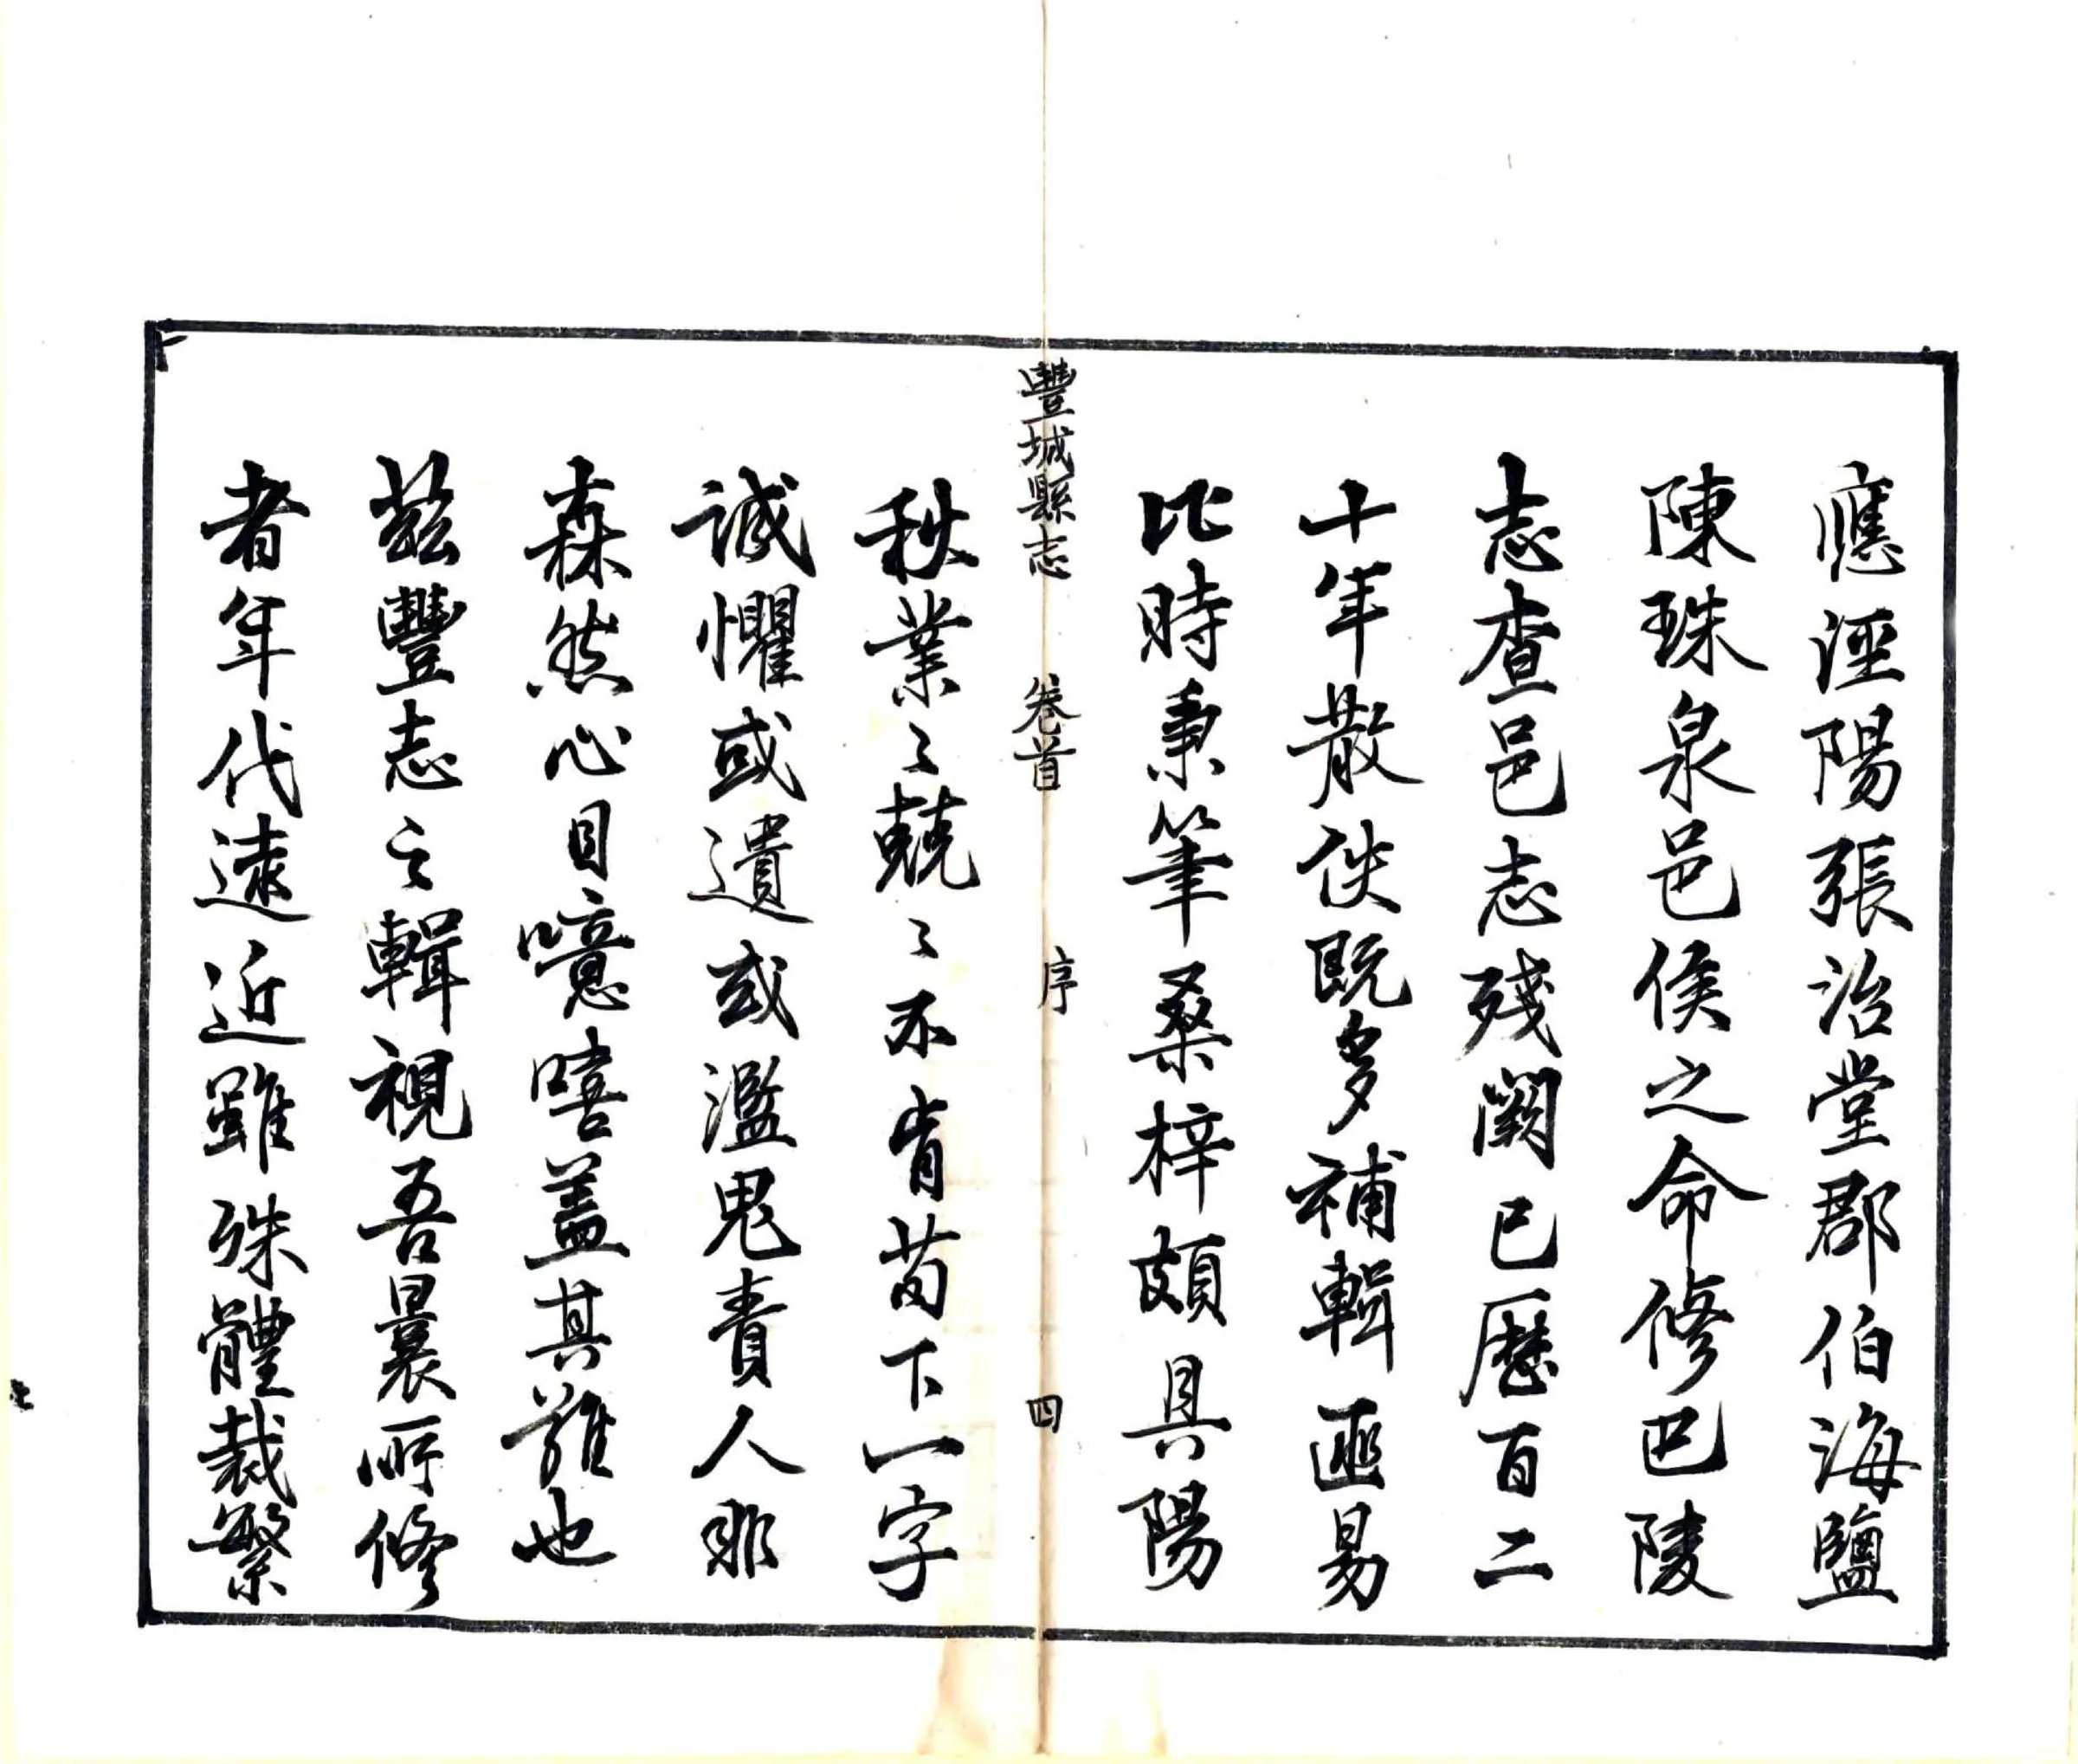 應涇陽張治堂郡伯海鹽
陳珠泉邑侯之命修巴陵
志查邑志殘闕已歷百二
十年散佚既多補輯匪易
比時秉筆桑梓頗具陽
豐城縣志 卷首 序 四
秋業〻兢〻不肯苟下一字
誠懼或遺或濫鬼責人非
森然心目噫嘻蓋其難也
茲豐志之輯視吾曩所修
者年代遠近雖殊體裁繁